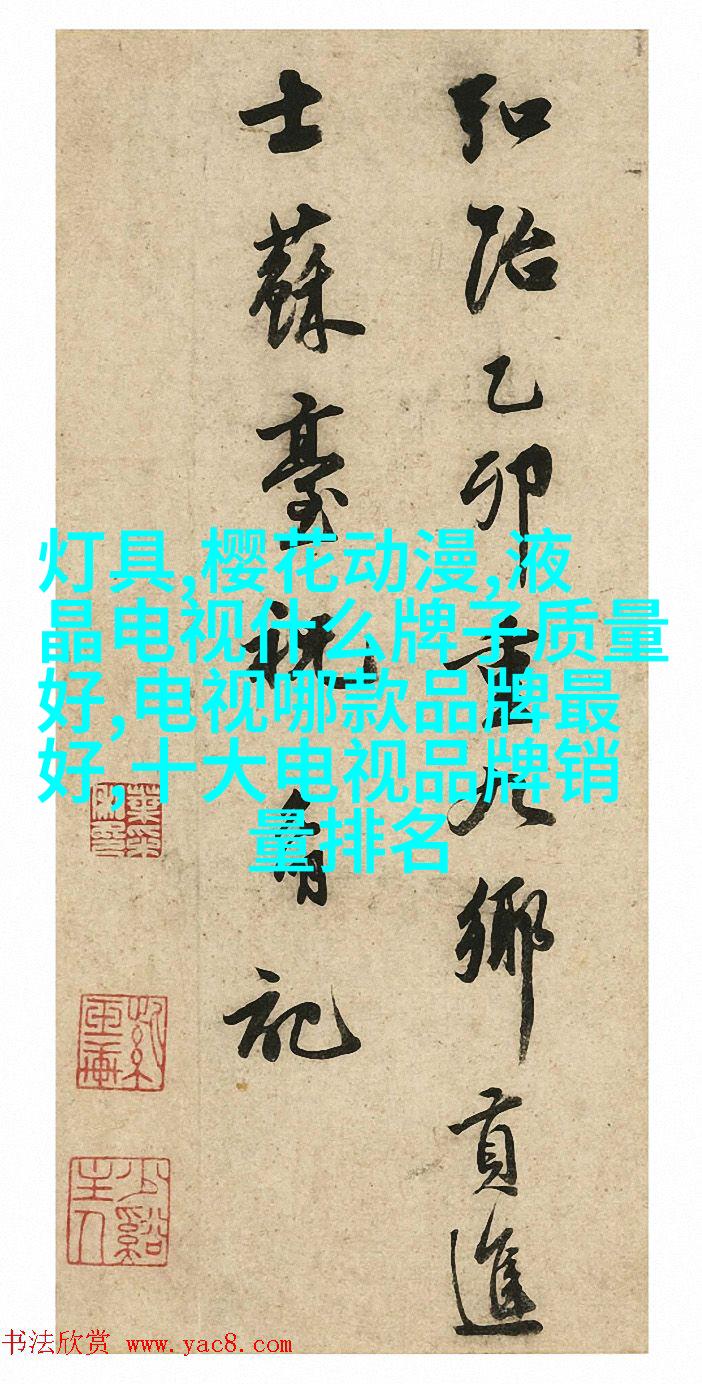 弘治乙卯重九鄉貢進
士蘇臺祝允明記
灯具,樱花动漫,液
晶电视什么牌子质量
好,电视哪款品牌最
好,十大电视品牌销
量排名
少谿
主人
书法欣赏 www.yac8.com